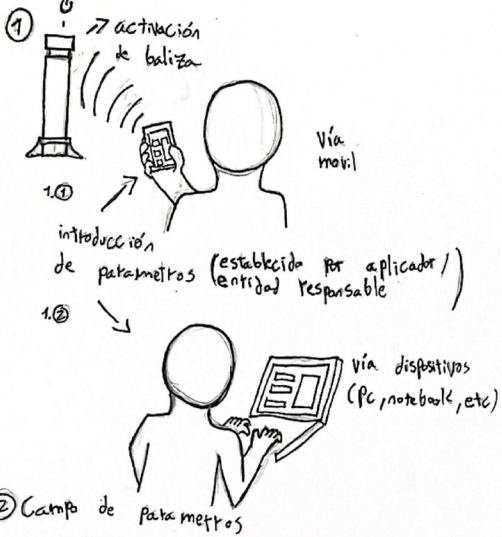 ① ↗ activación
de baliza
vía
movil
1.①
introducción
de parametros (establecido por aplicador/
entidad responsable)
1.②
vía dispositivos
(PC, notebook, etc)
② Campo de parametros